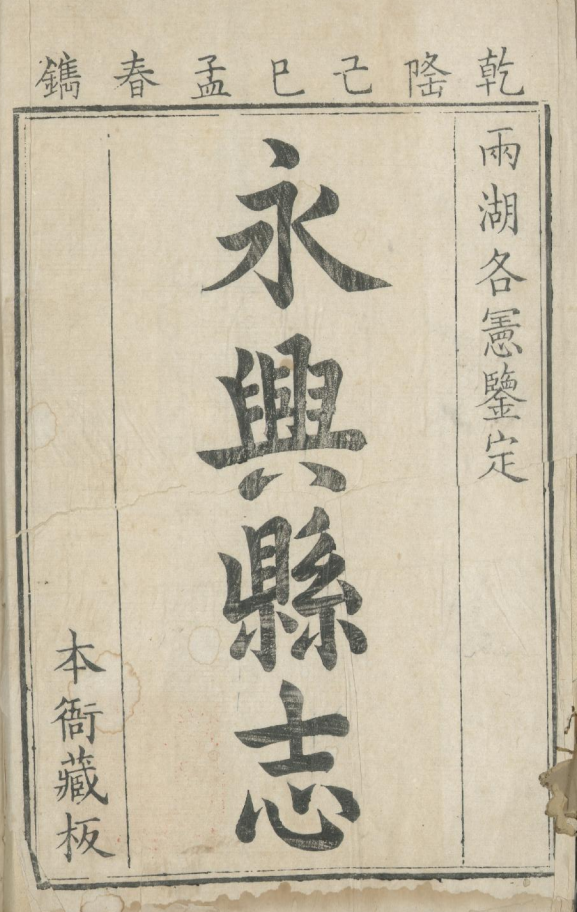 乾隆己巳孟春鐫
兩湖各憲鑒定
永興縣志
本衙藏板